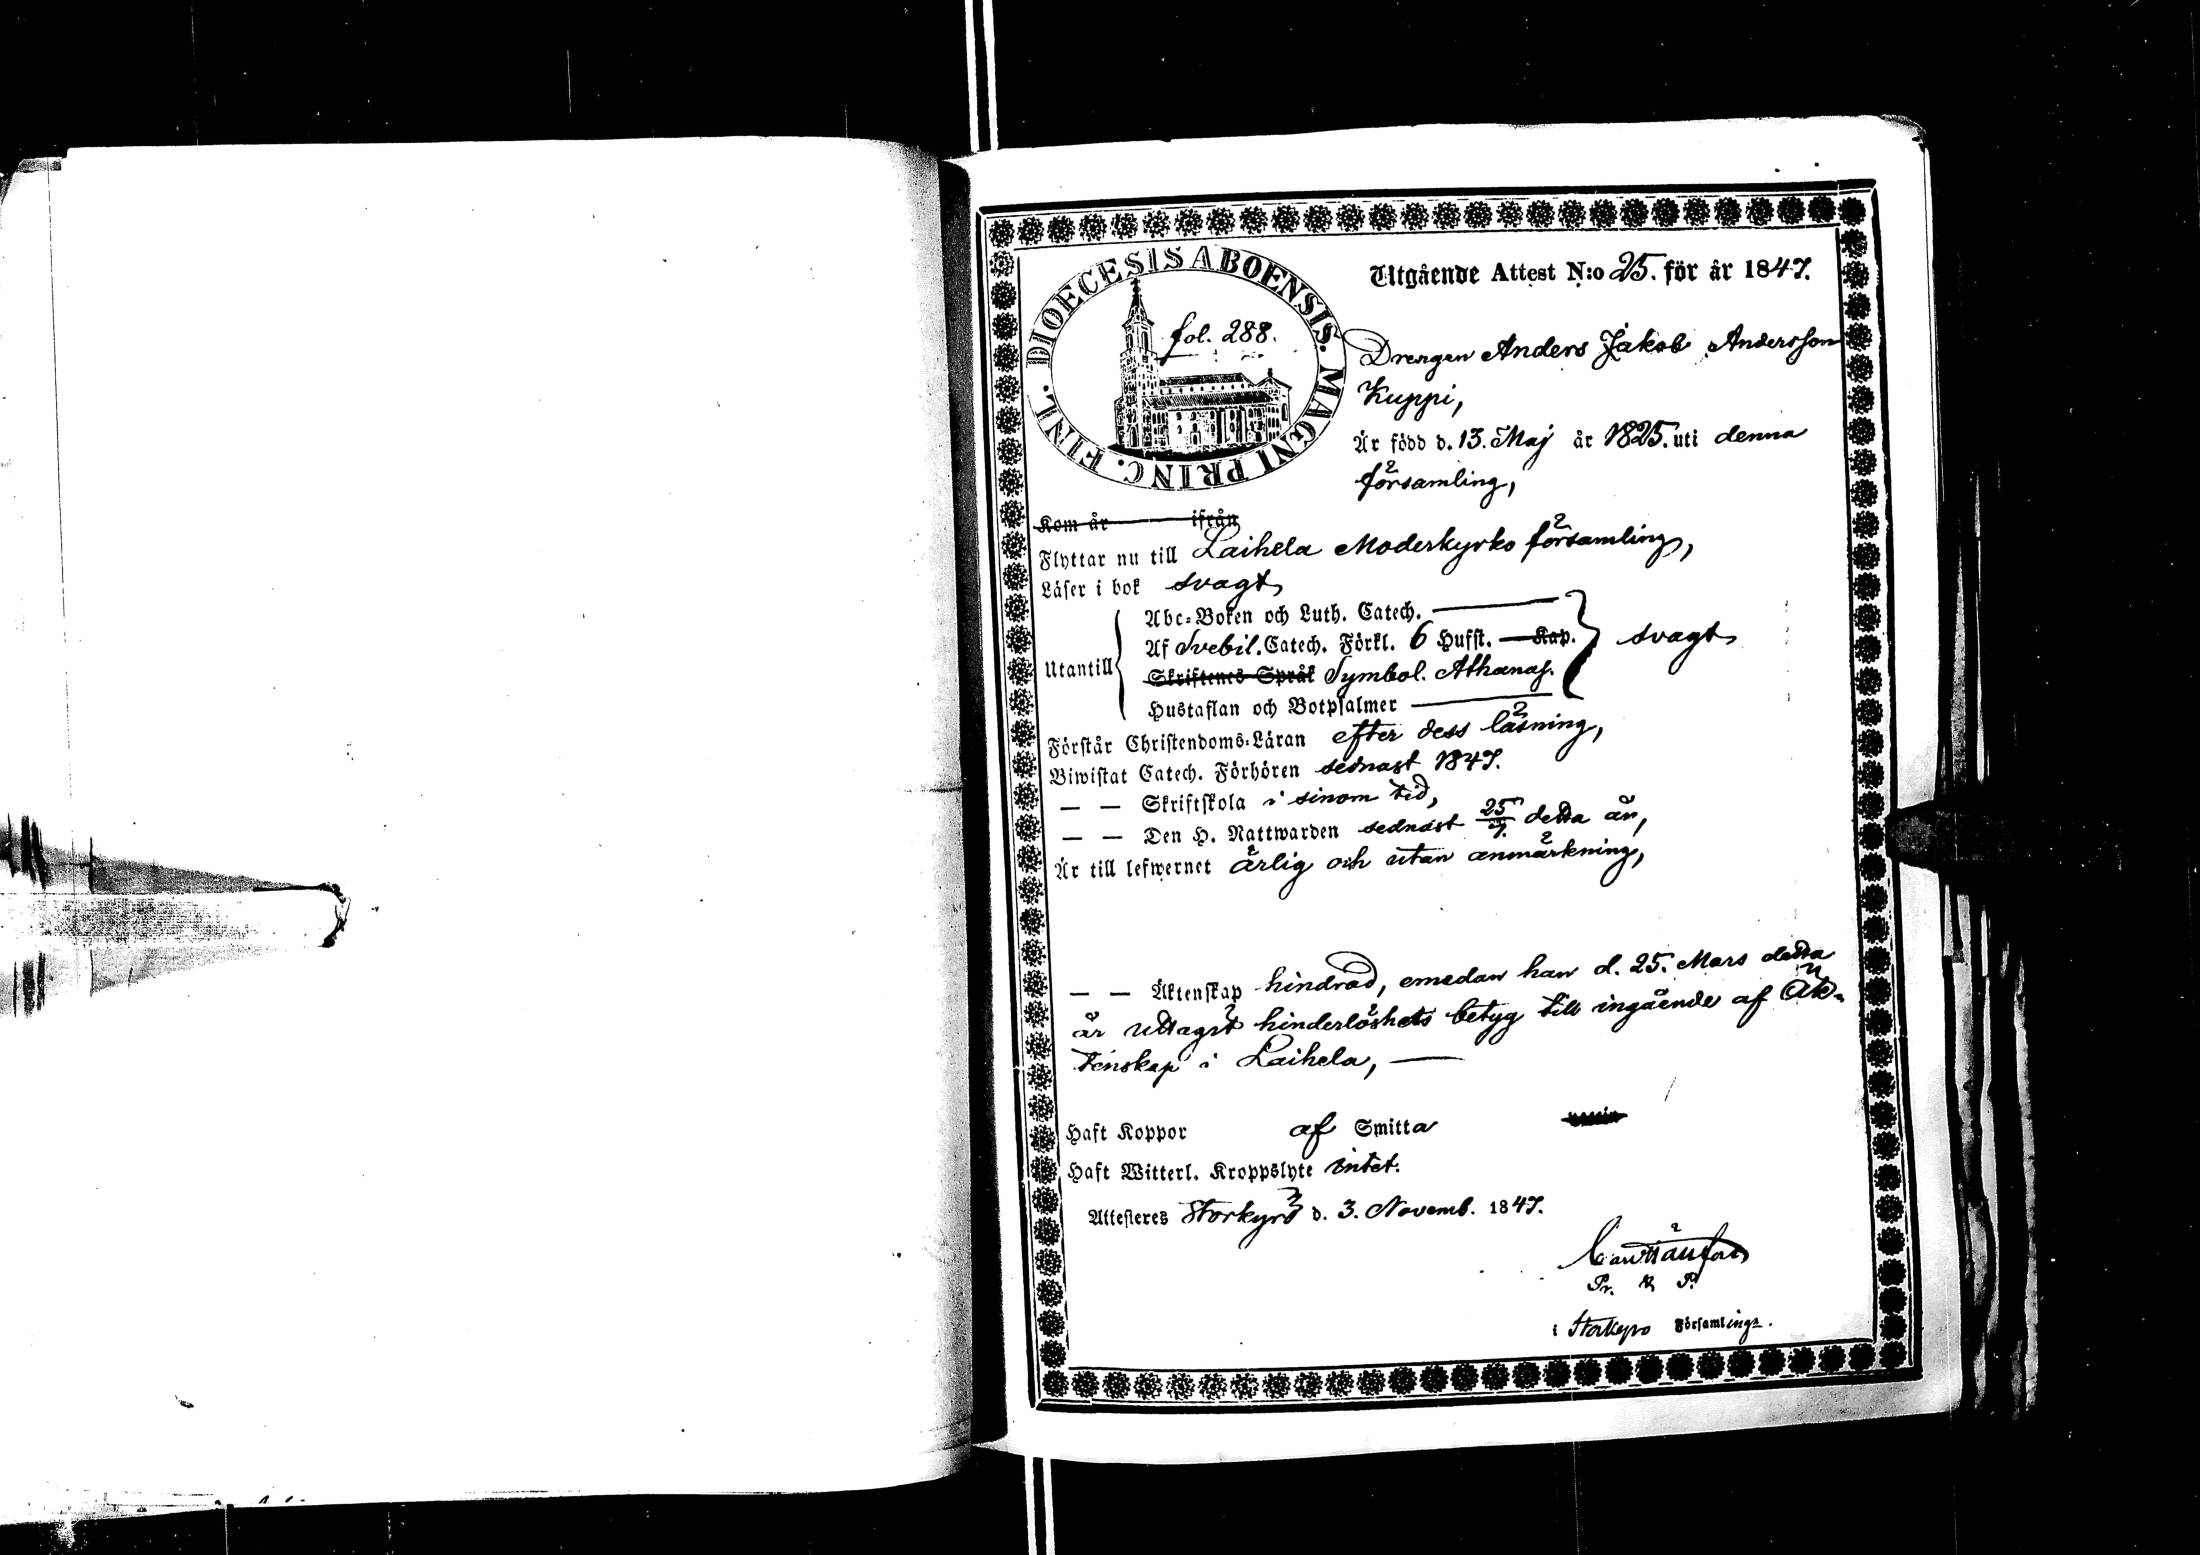 DIOECESIS ABOENSIS. MAGNI PRINC. FINL.
fol. 288.
Utgående Attest N:o 25. för år 1847.
Drengen Anders Jakob Andersson
Kuppi,
Är född d. 13. Maj år 1825. uti denna
församling,
Kom år ifrån
Flyttar nu till Laihela Moderkyrko församling,
Läser i bok svagt,
Utantill
Abc-Boken och Luth. Catech.
Af Svebil. Catech. Förkl. 6 Hufst. Kap.
svagt,
Skriftenes Språk Symbol. Athanas.
Hustaflan och Botpsalmer
Förstår Christendoms-Läran efter dess läsning,
Biwistat Catech. Förhören sednast 1847.
— — Skriftskola i sinom tid,
— — Den H. Nattwarden sednast 25/7. detta år,
Är till lefwernet ärlig och utan anmärkning,
— — Äktenskap hindrad, emedan han d. 25. Mars detta
år uttagit hinderlöshets betyg till ingående af Äk-
tenskap i Laihela, —
Haft Koppor af Smitta
Haft Witterl. Kroppslyte intet.
Attesteres Storkyrö d. 3. Novemb. 1847.
Pr. & P.
i Storkyro Församling.